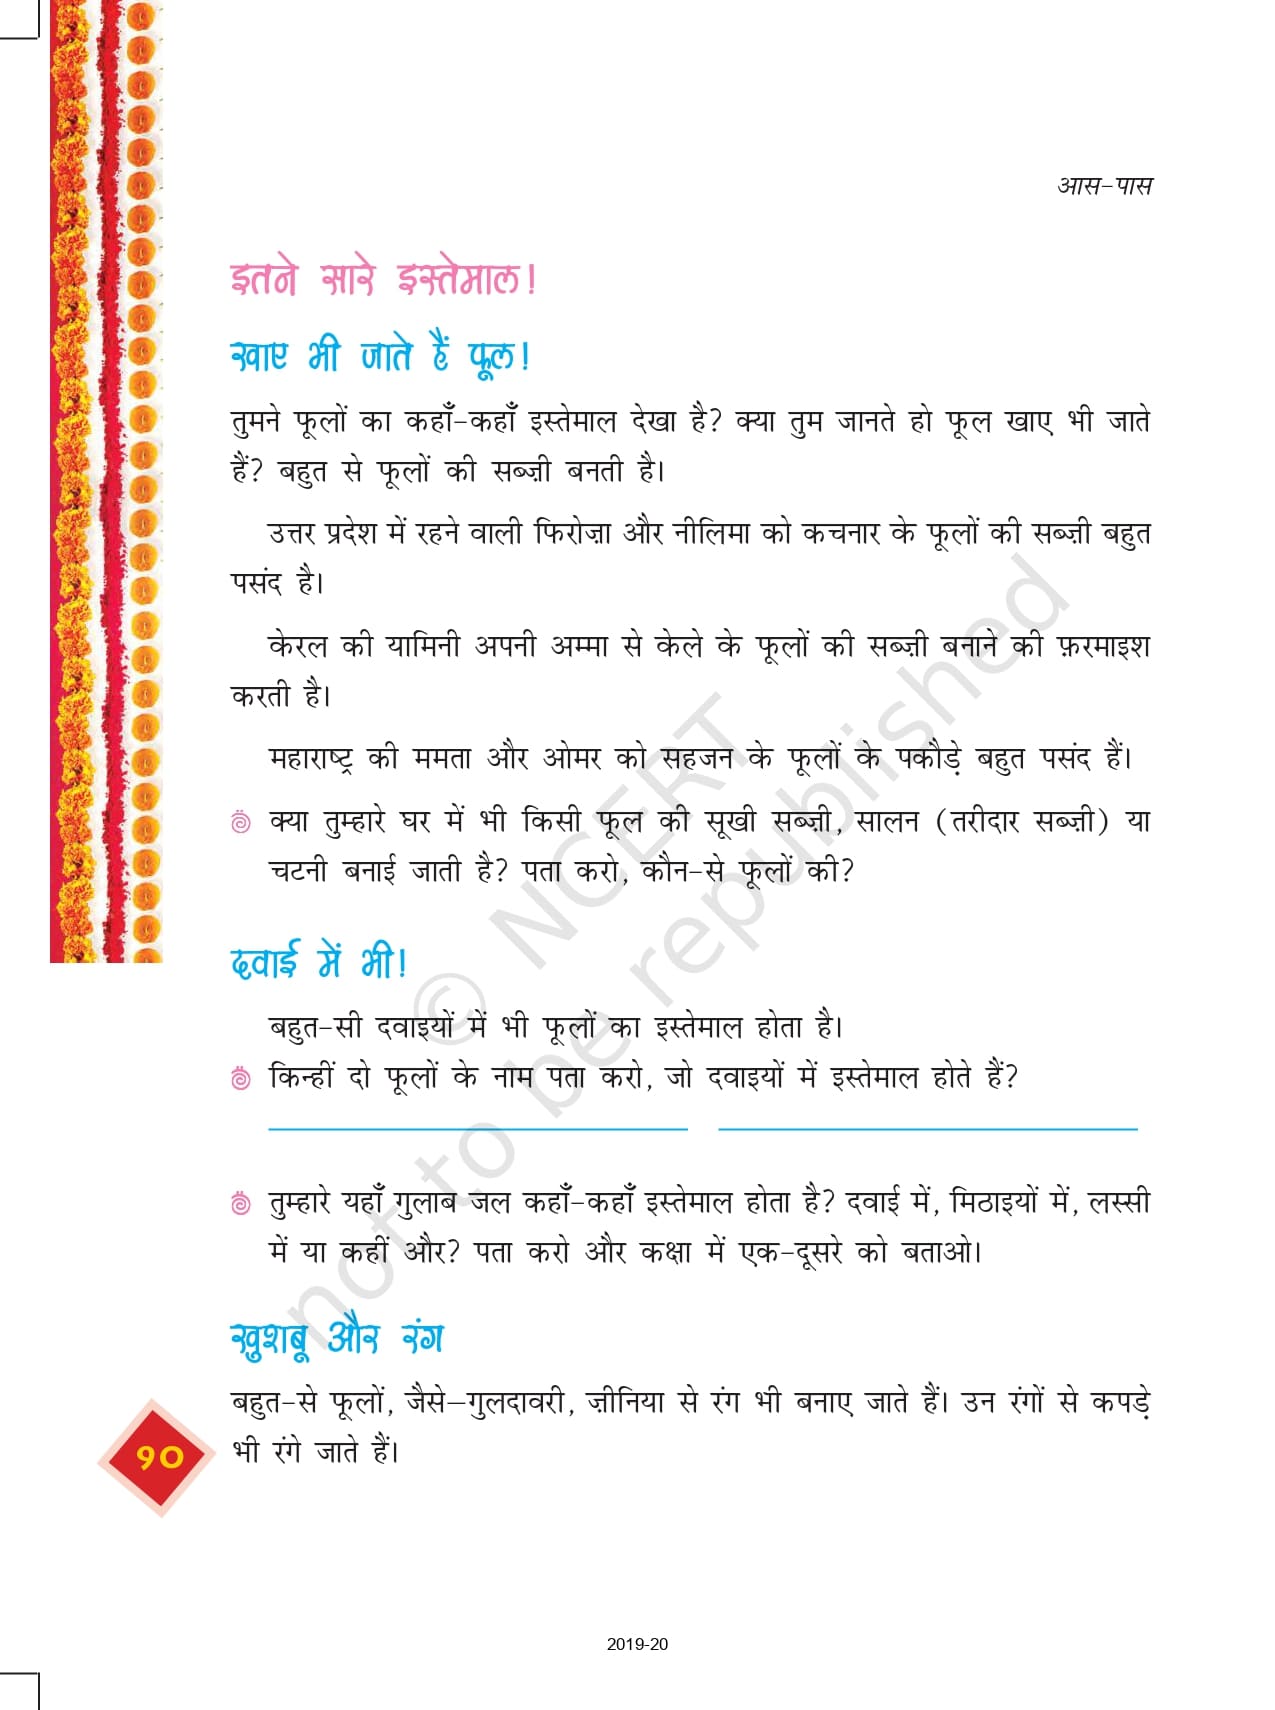 आस-पास
इतने सारे इस्तेमाल!
खाए भी जाते हैं फूल!
तुमने फूलों का कहाँ-कहाँ इस्तेमाल देखा है? क्या तुम जानते हो फूल खाए भी जाते
हैं? बहुत से फूलों की सब्ज़ी बनती है।
उत्तर प्रदेश में रहने वाली फिरोज़ा और नीलिमा को कचनार के फूलों की सब्ज़ी बहुत
पसंद है।
केरल की यामिनी अपनी अम्मा से केले के फूलों की सब्ज़ी बनाने की फ़रमाइश
करती है।
महाराष्ट्र की ममता और ओमर को सहजन के फूलों के पकौड़े बहुत पसंद हैं।
क्या तुम्हारे घर में भी किसी फूल की सूखी सब्ज़ी, सालन (तरीदार सब्ज़ी) या
चटनी बनाई जाती है? पता करो, कौन-से फूलों की?
दवाई में भी!
बहुत-सी दवाइयों में भी फूलों का इस्तेमाल होता है।
किन्हीं दो फूलों के नाम पता करो, जो दवाइयों में इस्तेमाल होते हैं?
तुम्हारे यहाँ गुलाब जल कहाँ-कहाँ इस्तेमाल होता है? दवाई में, मिठाइयों में, लस्सी
में या कहीं और? पता करो और कक्षा में एक-दूसरे को बताओ।
खुशबू और रंग
बहुत-से फूलों, जैसे—गुलदावरी, ज़ीनिया से रंग भी बनाए जाते हैं। उन रंगों से कपड़े
भी रंगे जाते हैं।
९०
2019-20
© NCERT
not to be republished